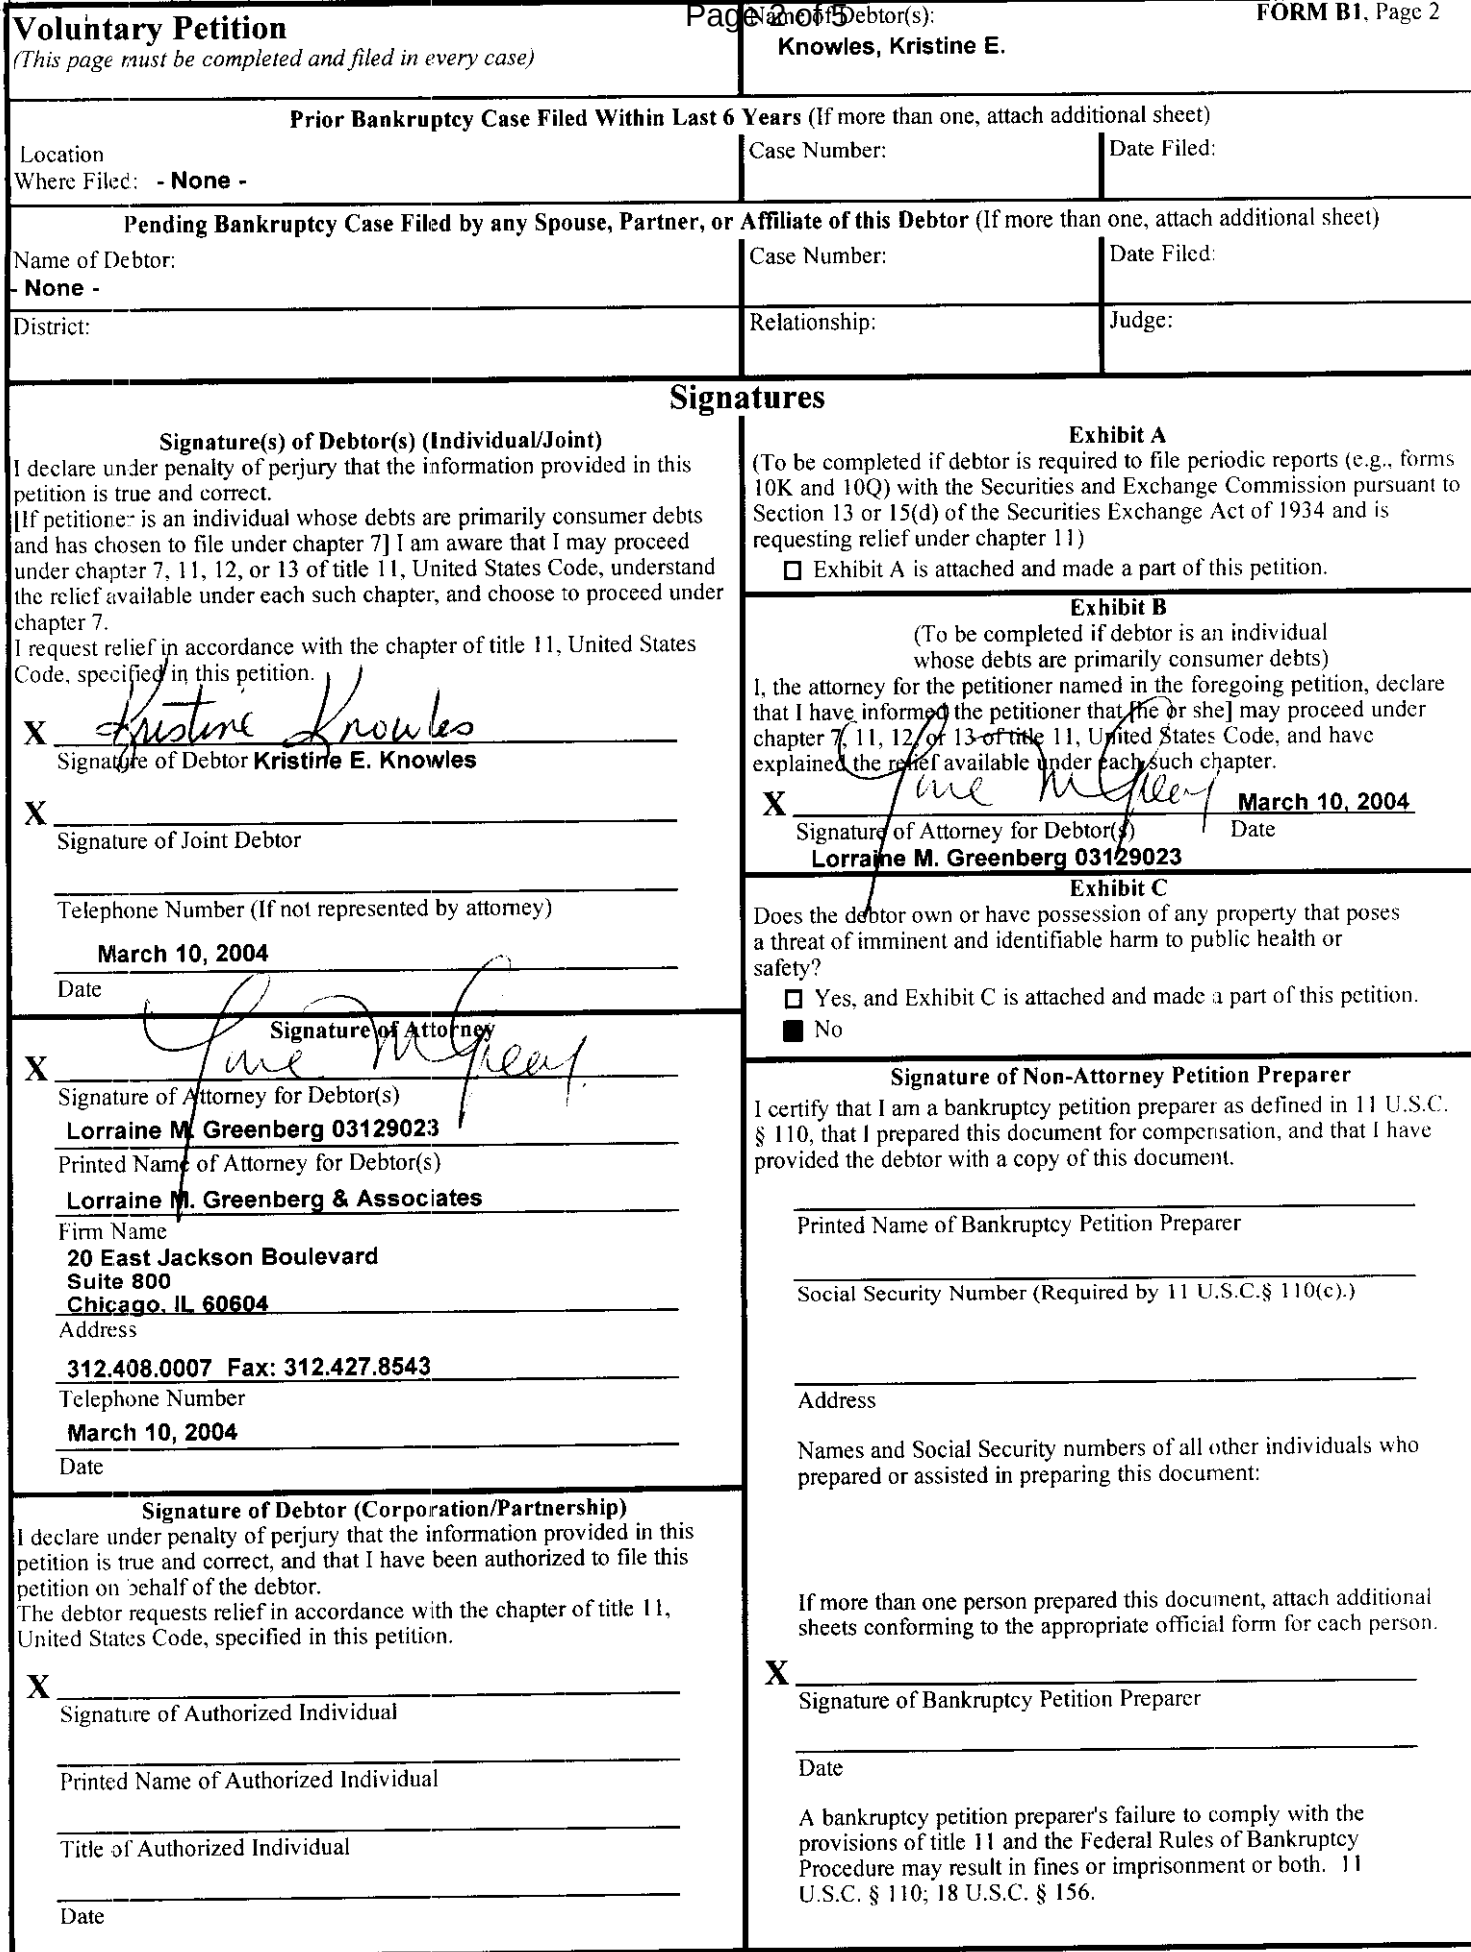 Voluntary Petition
(This page must be completed and filed in every case)
Page 2 of 5
Name of Debtor(s):
FORM B1, Page 2
Knowles, Kristine E.
Prior Bankruptcy Case Filed Within Last 6 Years (If more than one, attach additional sheet)
Location
Where Filed: - None -
Case Number:
Date Filed:
Pending Bankruptcy Case Filed by any Spouse, Partner, or Affiliate of this Debtor (If more than one, attach additional sheet)
Name of Debtor:
- None -
Case Number:
Date Filed:
District:
Relationship:
Judge:
Signatures
Signature(s) of Debtor(s) (Individual/Joint)
I declare under penalty of perjury that the information provided in this
petition is true and correct.
[If petitioner is an individual whose debts are primarily consumer debts
and has chosen to file under chapter 7] I am aware that I may proceed
under chapter 7, 11, 12, or 13 of title 11, United States Code, understand
the relief available under each such chapter, and choose to proceed under
chapter 7.
I request relief in accordance with the chapter of title 11, United States
Code, specified in this petition.
X Kristine Knowles
Signature of Debtor Kristine E. Knowles
X
Signature of Joint Debtor
Telephone Number (If not represented by attorney)
March 10, 2004
Date
Signature of Attorney
X
Signature of Attorney for Debtor(s)
Lorraine M. Greenberg 03129023
Printed Name of Attorney for Debtor(s)
Lorraine M. Greenberg & Associates
Firm Name
20 East Jackson Boulevard
Suite 800
Chicago, IL 60604
Address
312.408.0007 Fax: 312.427.8543
Telephone Number
March 10, 2004
Date
Signature of Debtor (Corporation/Partnership)
I declare under penalty of perjury that the information provided in this
petition is true and correct, and that I have been authorized to file this
petition on behalf of the debtor.
The debtor requests relief in accordance with the chapter of title 11,
United States Code, specified in this petition.
X
Signature of Authorized Individual
Printed Name of Authorized Individual
Title of Authorized Individual
Date
Exhibit A
(To be completed if debtor is required to file periodic reports (e.g., forms
10K and 10Q) with the Securities and Exchange Commission pursuant to
Section 13 or 15(d) of the Securities Exchange Act of 1934 and is
requesting relief under chapter 11)
☐ Exhibit A is attached and made a part of this petition.
Exhibit B
(To be completed if debtor is an individual
whose debts are primarily consumer debts)
I, the attorney for the petitioner named in the foregoing petition, declare
that I have informed the petitioner that [he or she] may proceed under
chapter 7, 11, 12, or 13 of title 11, United States Code, and have
explained the relief available under each such chapter.
X March 10, 2004
Signature of Attorney for Debtor(s) Date
Lorraine M. Greenberg 03129023
Exhibit C
Does the debtor own or have possession of any property that poses
a threat of imminent and identifiable harm to public health or
safety?
☐ Yes, and Exhibit C is attached and made a part of this petition.
■ No
Signature of Non-Attorney Petition Preparer
I certify that I am a bankruptcy petition preparer as defined in 11 U.S.C.
§ 110, that I prepared this document for compensation, and that I have
provided the debtor with a copy of this document.
Printed Name of Bankruptcy Petition Preparer
Social Security Number (Required by 11 U.S.C.§ 110(c).)
Address
Names and Social Security numbers of all other individuals who
prepared or assisted in preparing this document:
If more than one person prepared this document, attach additional
sheets conforming to the appropriate official form for each person.
X
Signature of Bankruptcy Petition Preparer
Date
A bankruptcy petition preparer's failure to comply with the
provisions of title 11 and the Federal Rules of Bankruptcy
Procedure may result in fines or imprisonment or both. 11
U.S.C. § 110; 18 U.S.C. § 156.